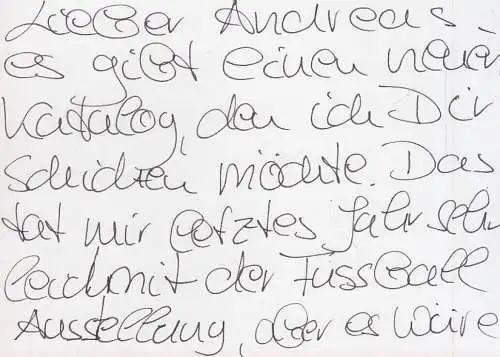 Lieber Andreas
es gibt einen neuen
Katalog, den ich Dir
schicken möchte. Das
tat mir letztes Jahr sehr
leid mit der Fussball
Ausstellung, aber es wäre